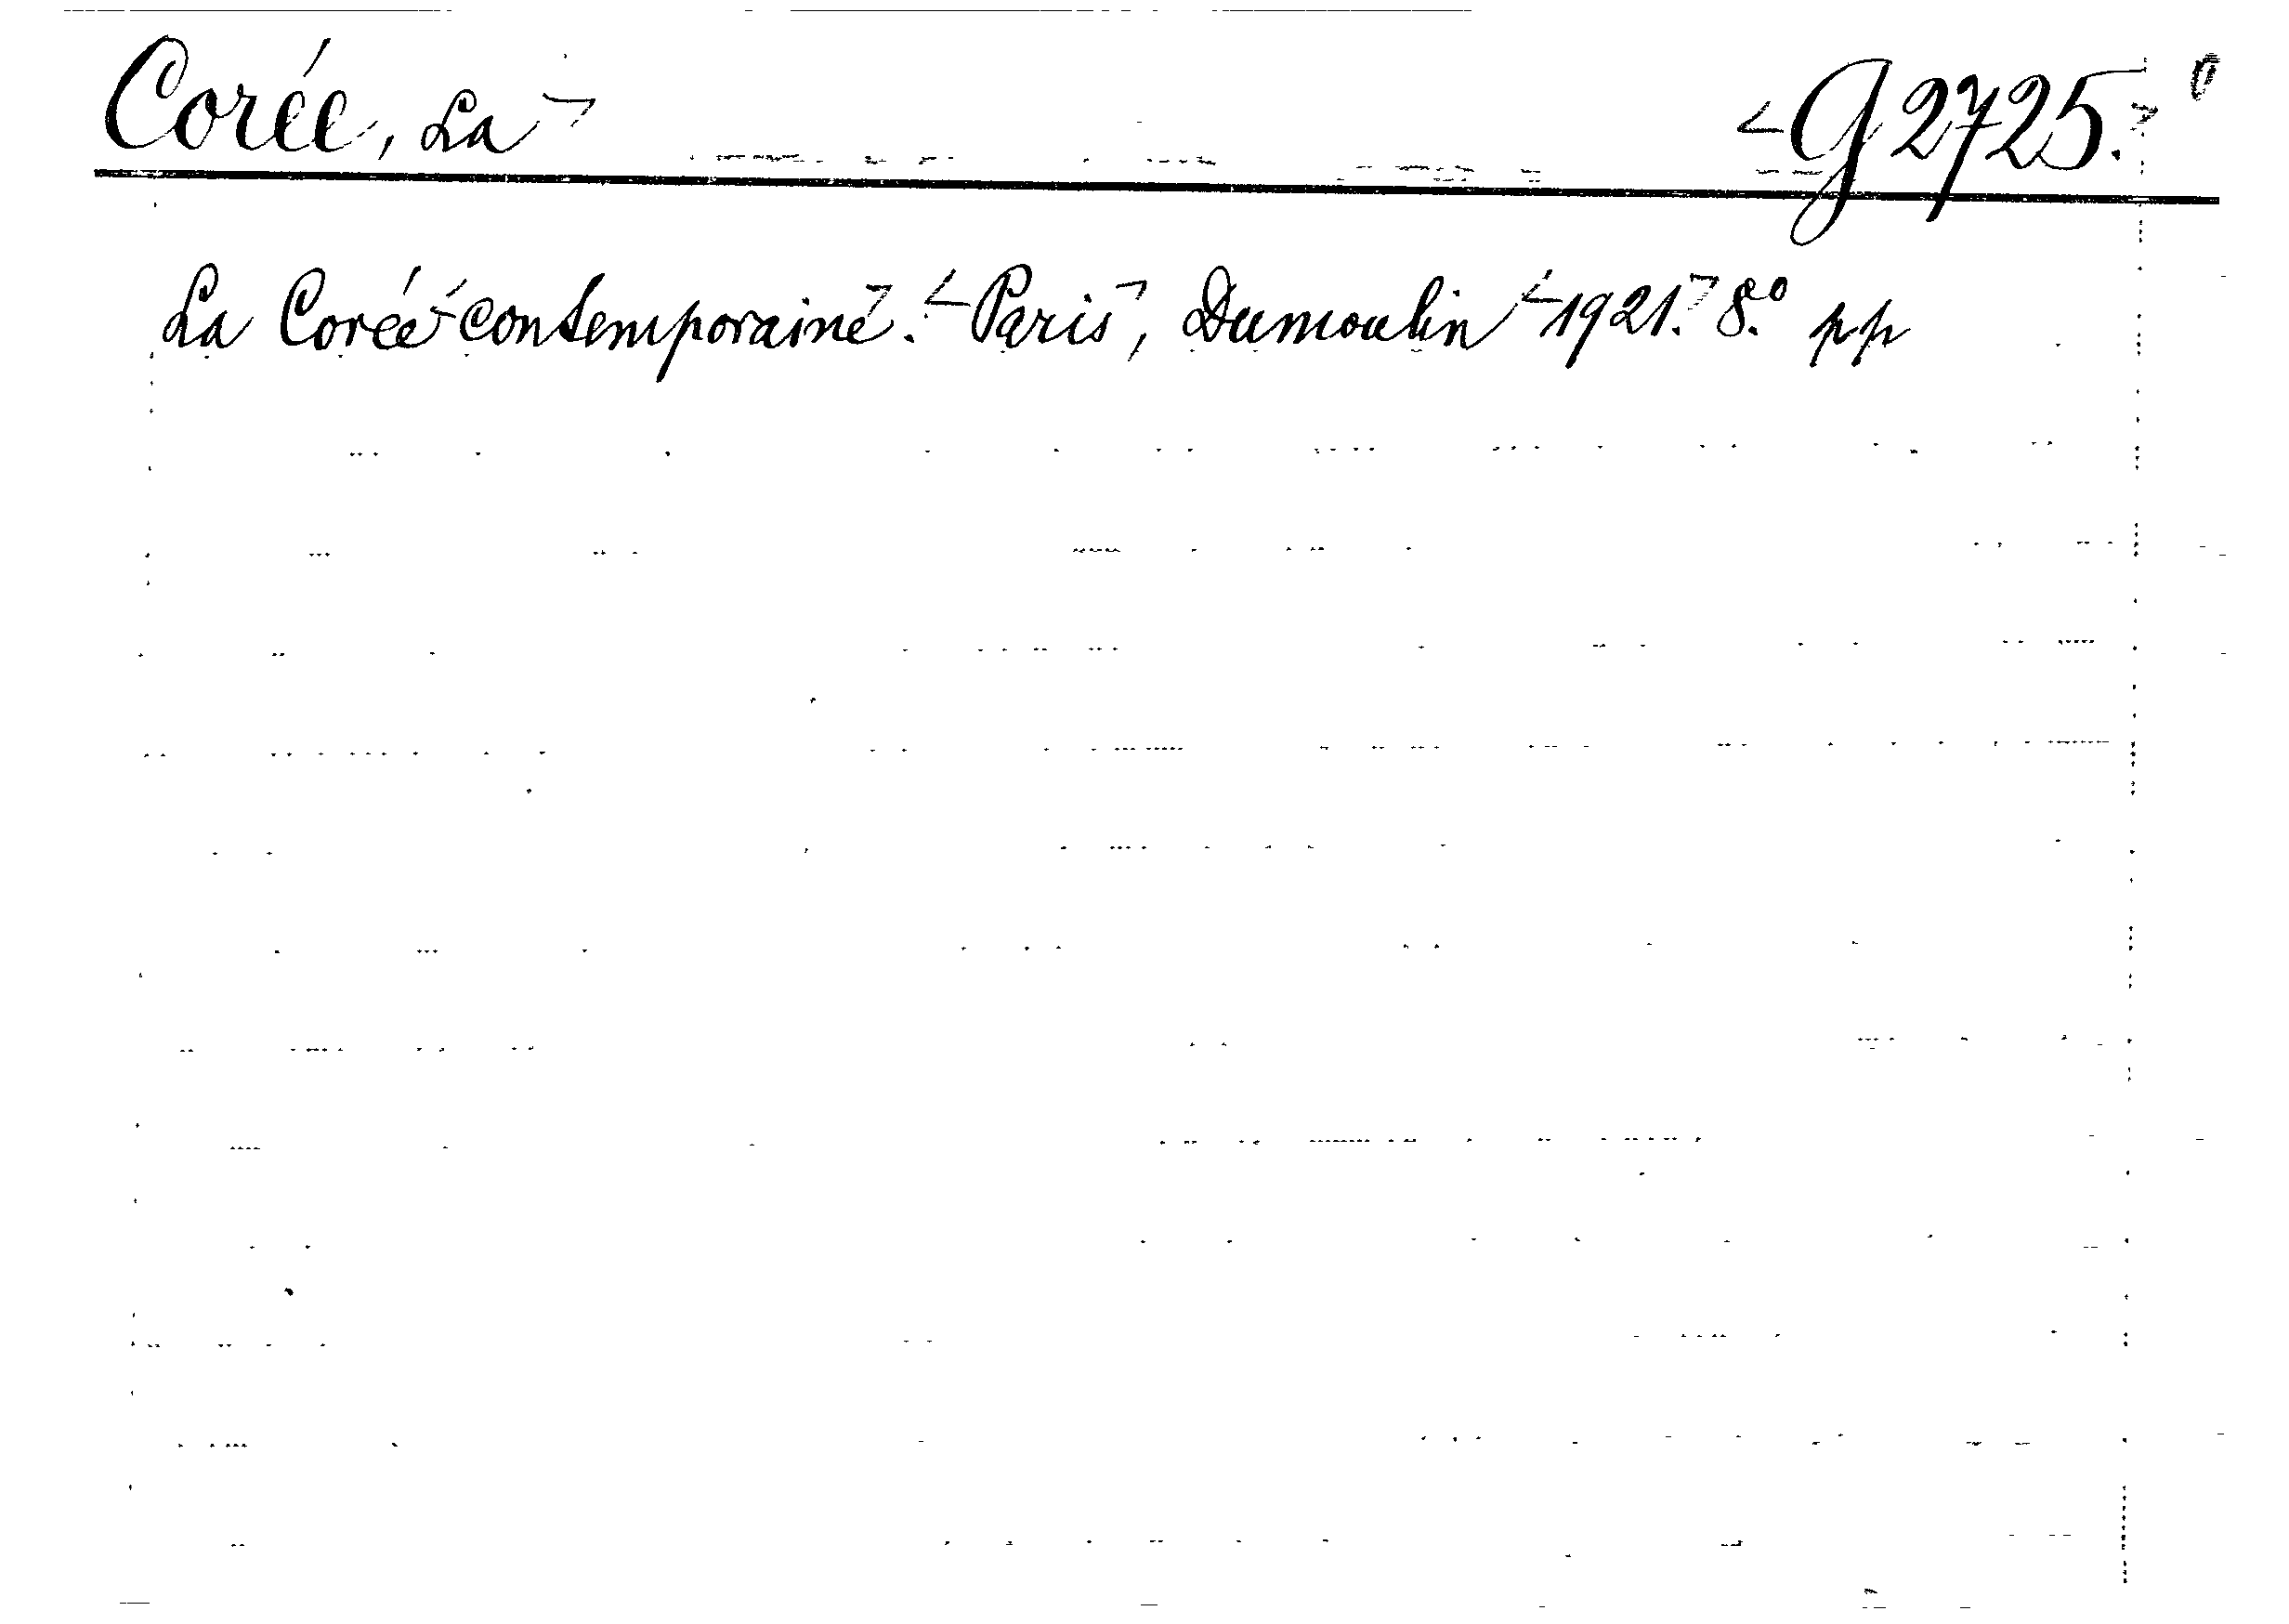 Corée, La G 2725. 0
La Corée contemporaine. Paris, Dumoulin 1921. 8.º pp